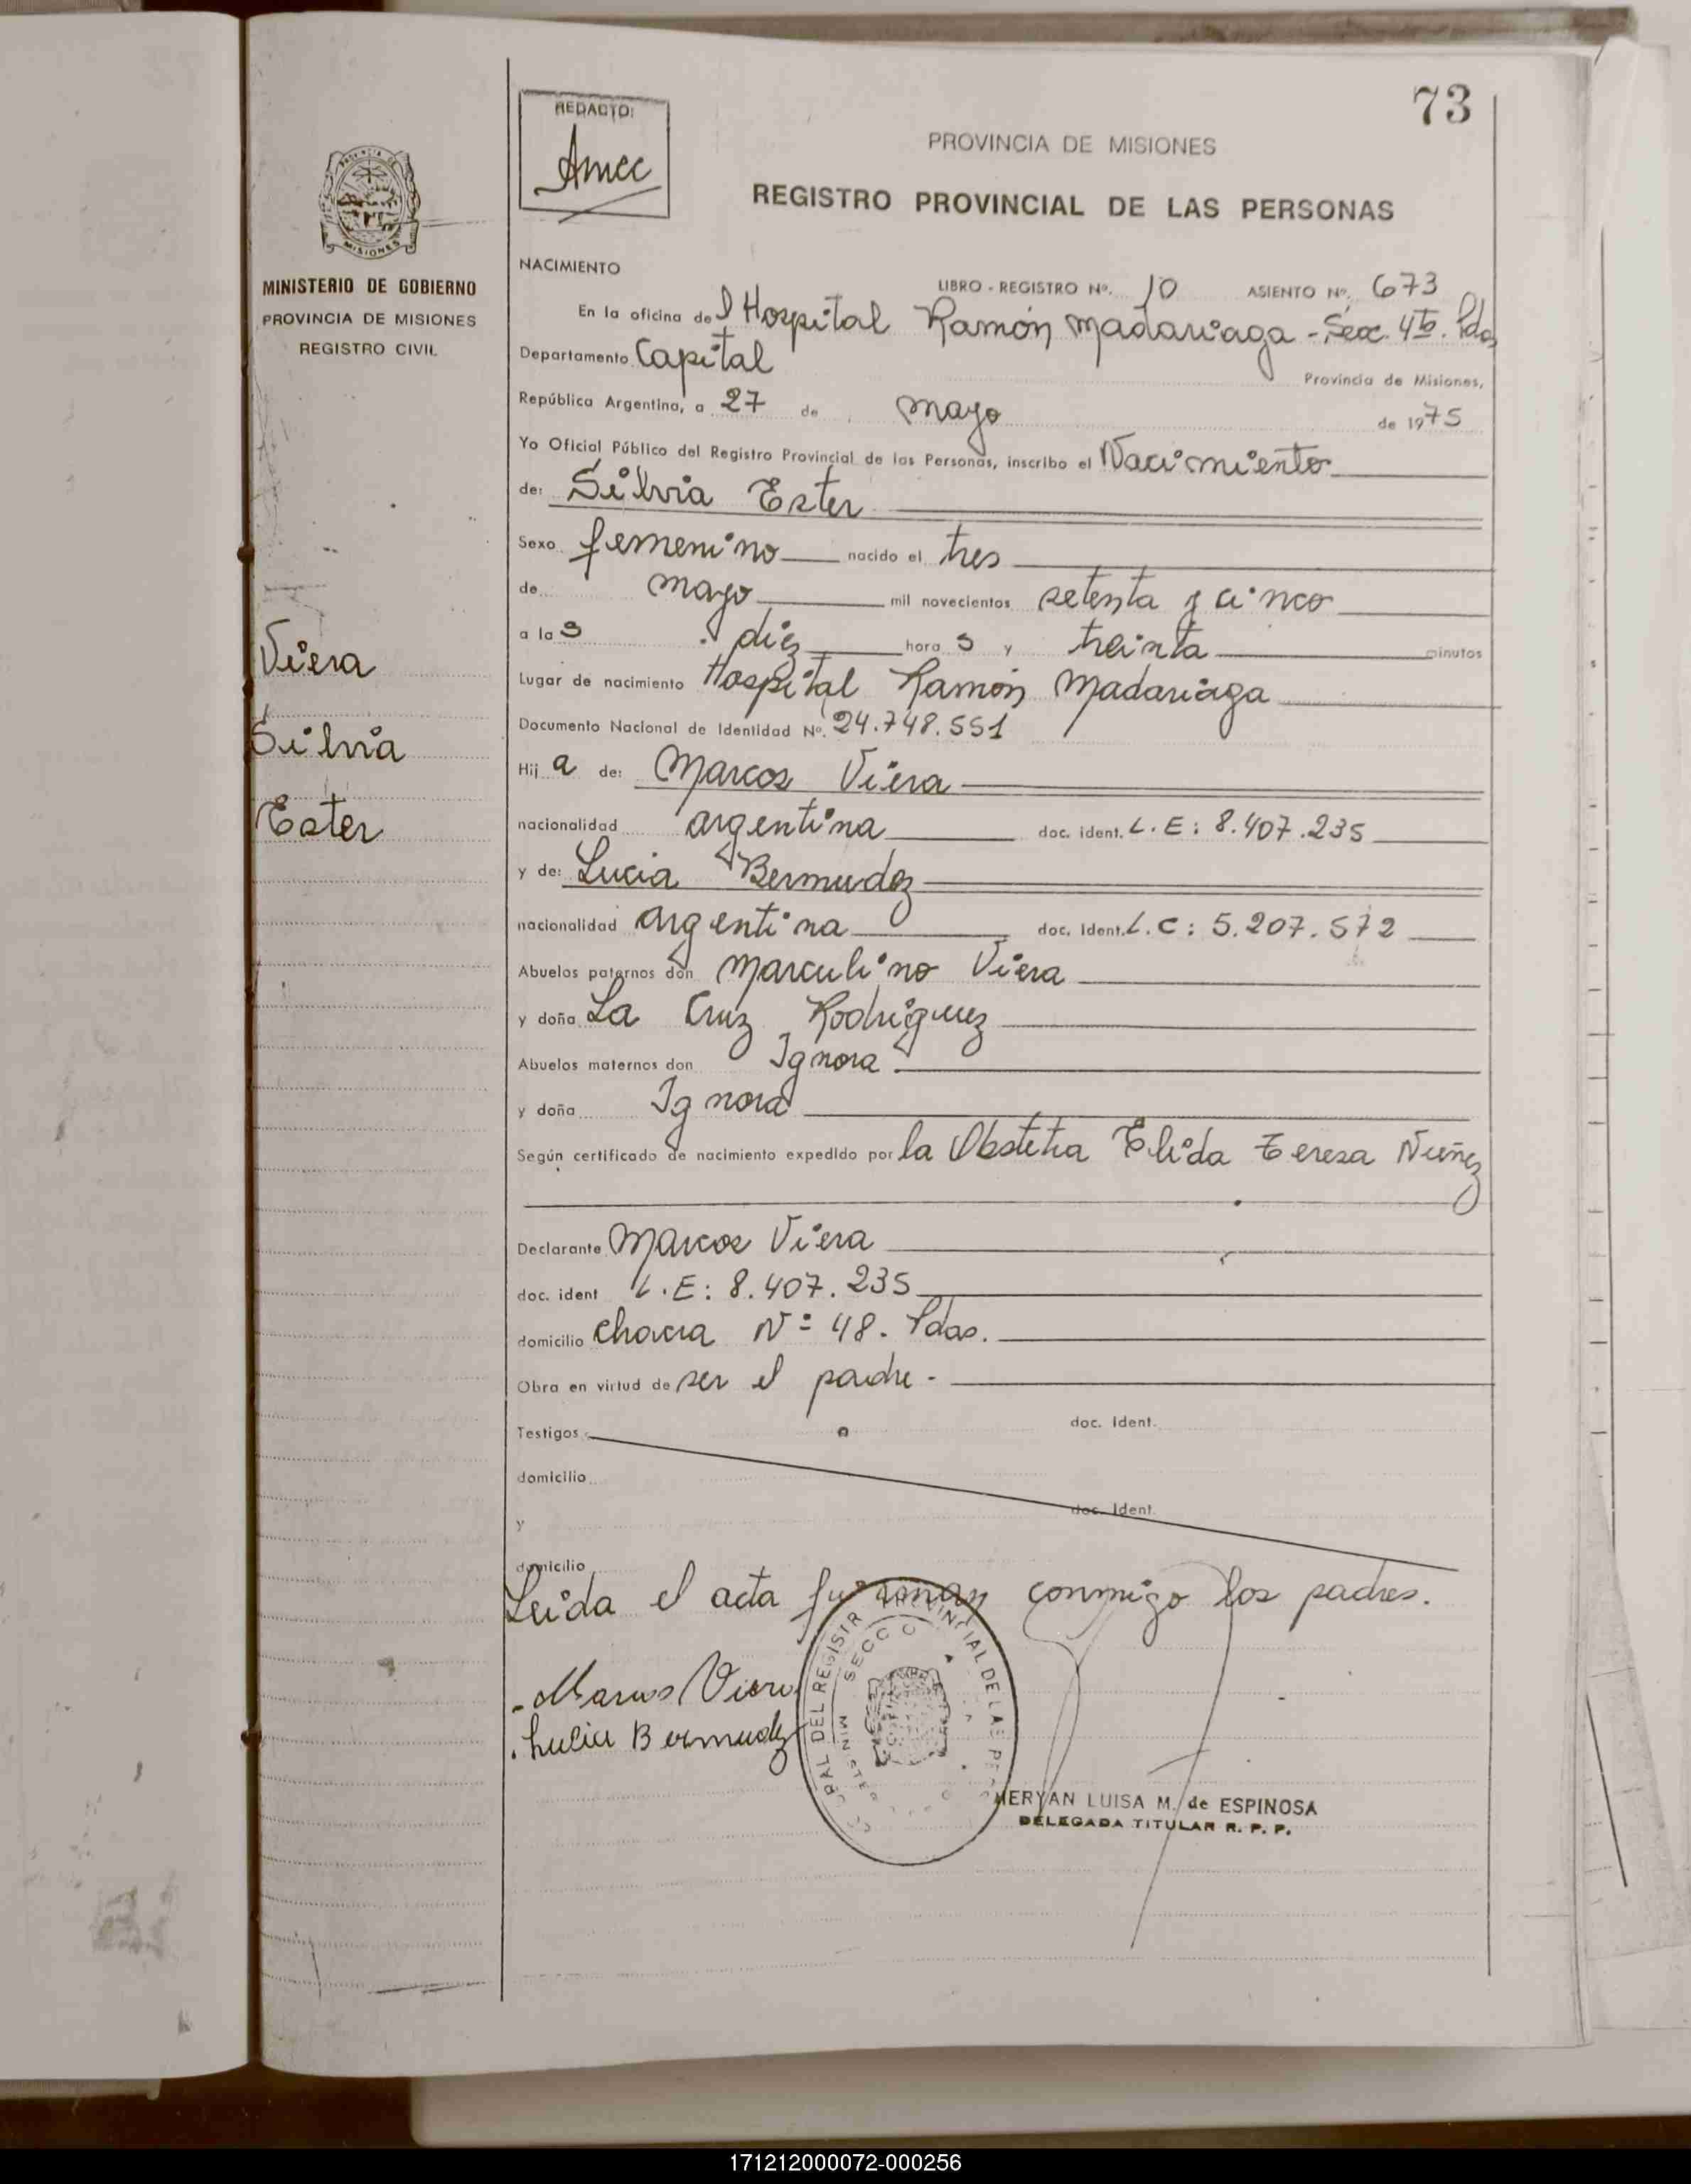 73
REDACTO:
Amcc
PROVINCIA DE MISIONES
REGISTRO PROVINCIAL DE LAS PERSONAS
MISIONES
MINISTERIO DE GOBIERNO
PROVINCIA DE MISIONES
REGISTRO CIVIL
NACIMIENTO
LIBRO - REGISTRO Nº. 10 ASIENTO Nº. 673
En la oficina del Hospital Ramón Madariaga - Secc. 4ta. Pdas
Departamento Capital
Provincia de Misiones,
República Argentina, a 27 de mayo de 1975
Yo Oficial Público del Registro Provincial de las Personas, inscribo el Nacimiento
de: Silvia Ester
Sexo femenino nacido el tres
de mayo mil novecientos setenta y cinco
a las diez horas y treinta minutos
Lugar de nacimiento Hospital Ramón Madariaga
Documento Nacional de Identidad Nº. 24.748.551
Hija de: Marcos Viera
nacionalidad argentina doc. ident. L.E: 8.407.235
y de: Lucia Bermudez
nacionalidad argentina doc. Ident. L.C: 5.207.572
Abuelos paternos don Marculino Viera
y doña La Cruz Rodriguez
Abuelos maternos don Ignora
y doña Ignora
Según certificado de nacimiento expedido por la Obstetra Elida Teresa Nuñez
Declarante Marcos Viera
doc. ident L.E: 8.407.235
domicilio chacra Nº 48. Pdas.
Obra en virtud de ser el padre -
Testigos doc. Ident.
domicilio
y doc. Ident.
domicilio
Leida el acta firman conmigo los padres.
Marcos Viera
Lucia Bermudez
Viera
Silvia
Ester
DEL REGISTR PROVINCIAL DE LAS PE
SECC
MINISTE
MERYAN LUISA M. de ESPINOSA
DELEGADA TITULAR R. P. P.
171212000072-000256